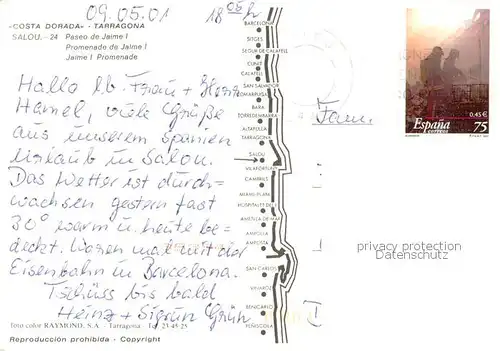 09.05.01 18 05 h
«COSTA DORADA» - TARRAGONA
SALOU. - 24 Paseo de Jaime I
Promenade de Jaime I
Jaime I Promenade
Hallo lb. Frau + Herrn
Hamel, viele Grüße
aus unserem spanien
Urlaub in Salou.
Das Wetter ist durch=
wachsen gestern fast
30° warm u. heute be=
deckt. Waren mal mit der
Eisenbahn in Barcelona.
Tschüss bis bald
Heinz + Sigrun Grün
foto color RAYMOND, S.A. - Tarragona - Tel 23 45 25
Reproducción prohibida - Copyright
BARCELONA
SITGES
SEGUR DE CALAFELL
CUNIT
CALAFELL
SAN SALVADOR
COMARRUGA
BARA
TORREDEMBARRA
ALTAFULLA
TARRAGONA
SALOU
VILAFORTUNY
CAMBRILS
MIAMI-PLAYA
HOSPITALET DEL I.
AMETLLA DE MAR
AMPOLLA
AMPOSTA
SAN CARLOS
VINAROZ
BENICARLO
PEÑISCOLA
Fam.
I
0,45 €
España
correos
75
privacy protection
Datenschutz